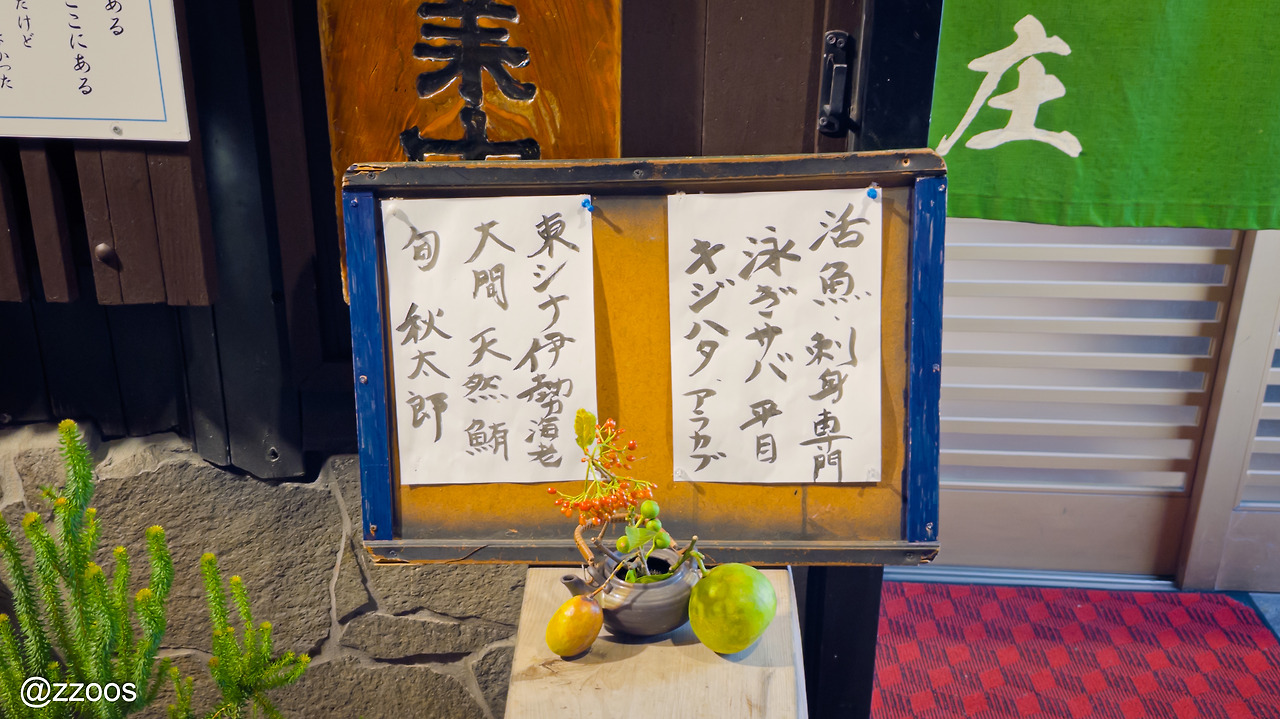 ある
だけど
ここにある
なかった
庄
活魚、刺身専門
泳ぎサバ 平目
キジハタ、アラカブ
東シナ伊勢海老
大間 天然 鮪
旬 秋太郎
@zzoos